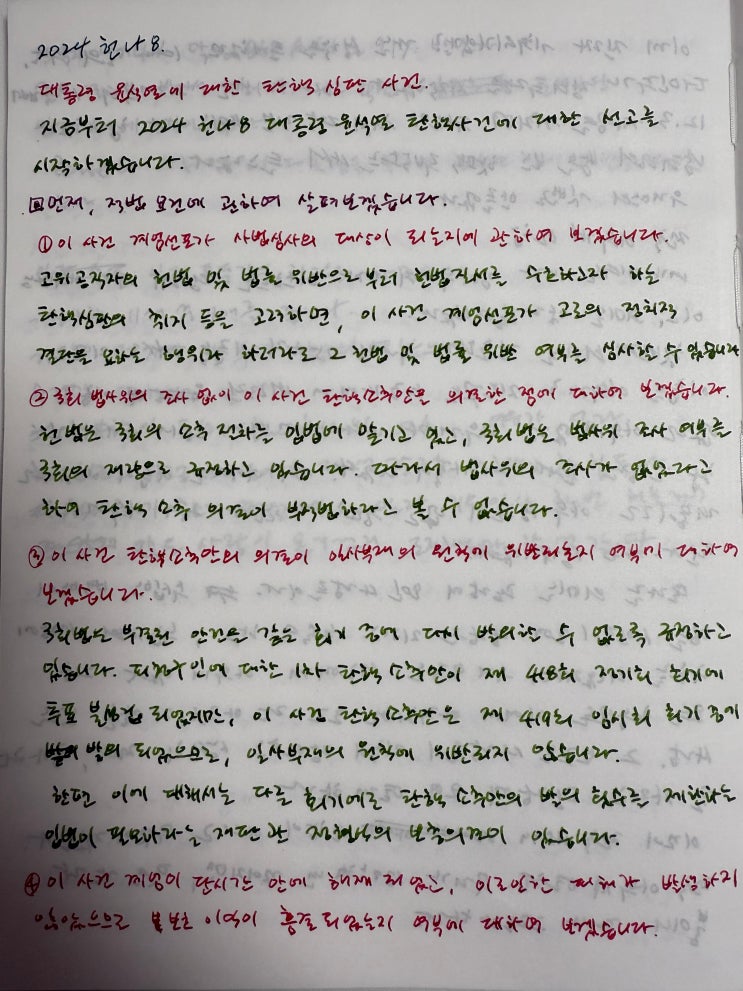 2024 헌나 8.
대통령 윤석열에 대한 탄핵 심판 사건.
지금부터 2024 헌나 8 대통령 윤석열 탄핵사건에 대한 선고를
시작하겠습니다.
1 먼저, 적법 요건에 관하여 살펴보겠습니다.
① 이 사건 계엄선포가 사법심사의 대상이 되는지에 관하여 보겠습니다.
고위공직자의 헌법 및 법률 위반으로부터 헌법질서를 수호하고자 하는
탄핵심판의 취지 등을 고려하면, 이 사건 계엄선포가 고도의 정치적
결단을 요하는 행위라 하더라도 그 헌법 및 법률 위반 여부를 심사할 수 있습니다
② 국회 법사위의 조사 없이 이 사건 탄핵소추안을 의결한 점에 대하여 보겠습니다.
헌법은 국회의 소추 절차를 입법에 맡기고 있고, 국회법은 법사위 조사 여부를
국회의 재량으로 규정하고 있습니다. 따라서 법사위의 조사가 없었다고
하여 탄핵 소추 의결이 부적법하다고 볼 수 없습니다.
③ 이 사건 탄핵소추안의 의결이 일사부재의 원칙에 위반되는지 여부에 대하여
보겠습니다.
국회법은 부결된 안건을 같은 회기 중에 다시 발의할 수 없도록 규정하고
있습니다. 피청구인에 대한 1차 탄핵 소추안이 제 418회 정기회 회기에
투표 불성립 되었지만, 이 사건 탄핵소추안은 제 419회 임시회 회기 중에
발의 되었으므로, 일사부재의 원칙에 위반되지 않습니다.
한편 이에 대해서는 다른 회기에도 탄핵 소추안의 발의 횟수를 제한하는
입법이 필요하다는 재판관 정형식의 보충의견이 있습니다.
④ 이 사건 계엄이 단시간 안에 해제 되었고, 이로인한 피해가 발생하지
않았으므로 보호 이익이 흠결되었는지 여부에 대하여 보겠습니다.